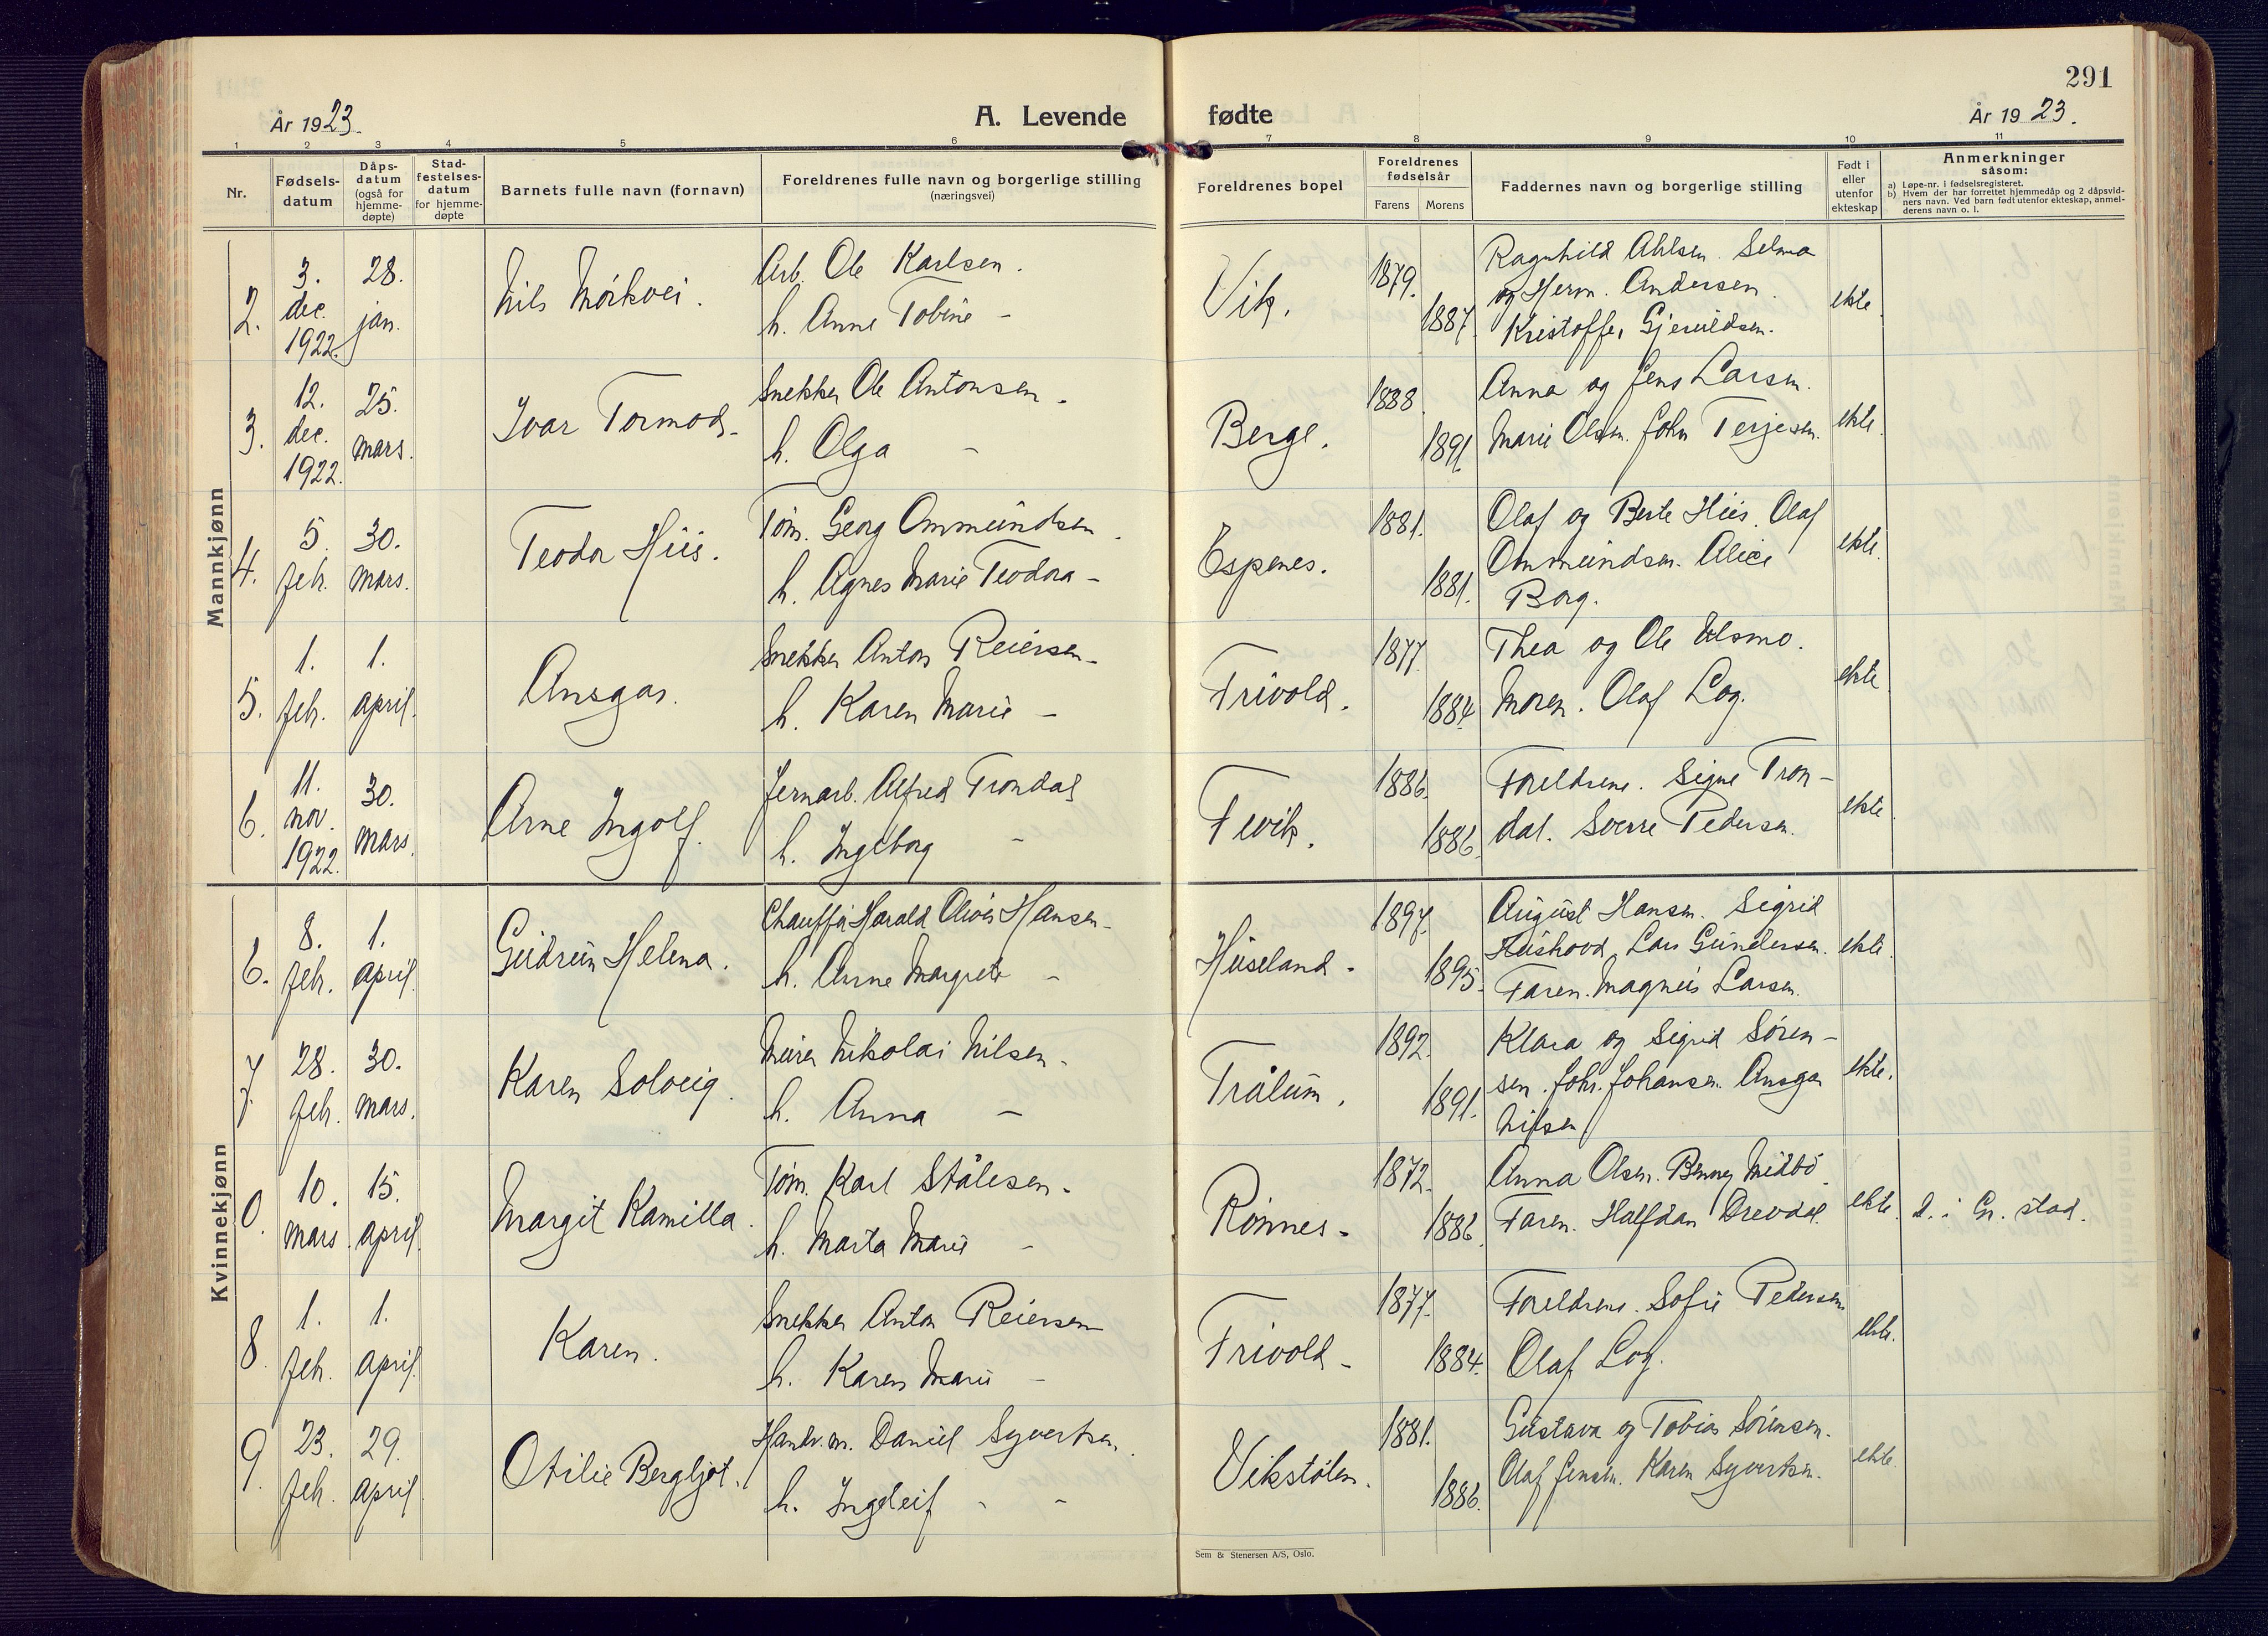 291
År 1923.
A. Levende
fødte
År 1923.
1 2 3 4 5 6 7 8 9 10 11
Nr.
Fødsels-
datum
Dåps-
datum
(også for
hjemme-
døpte)
Stad-
festelses-
datum
for hjemme-
døpte
Barnets fulle navn (fornavn)
Foreldrenes fulle navn og borgerlige stilling
(næringsvei)
Foreldrenes bopel
Foreldrenes
fødselsår
Farens Morens
Faddernes navn og borgerlige stilling
Født i
eller
utenfor
ekteskap
Anmerkninger
såsom:
a) Løpe-nr. i fødselsregisteret.
b) Hvem der har forrettet hjemmedåp og 2 dåpsvid-
ners navn. Ved barn født utenfor ekteskap, anmel-
derens navn o. l.
Mannkjønn
2.
3.
dec.
1922.
28.
jan.
Nils Mórkvei.
Arb. Ole Karlsen.
h. Anne Tobine -
Vik.
1879.
1887.
Ragnhild Ahlsen. Selma
og Herm. Andersen.
Kristoffer Gjeruldsen.
ekte.
3.
12.
dec.
1922.
25.
mars.
Ivar Tormod.
Snekker Ole Antonsen.
h. Olga -
Berge.
1888
1891.
Anna og Jens Larsen.
Marie Olsen. John Terjesen.
ekte.
4.
5.
feb.
30.
mars.
Teodor Hiis.
Tóm. Georg Ommundsen.
h. Agnes Marie Teodora -
Espenes.
1881.
1881.
Olaf og Berte Hiis. Olaf
Ommundsen. Alice
Borg.
ekte.
5.
1.
feb.
1.
april.
Ansgar.
Snekker Anton Reiersen -
h. Karen Marie -
Frivold.
1877.
1884
Thea og Ole
Moren. Olaf Log.
ekte
6.
11.
nov.
1922.
30.
mars.
Arne Ingolf.
Jernarb. Alfred Trondal
h. Ingeborg -
Fevik.
1886.
1886.
Foreldrene. Signe Tron-
dal. Sverre Pedersen.
ekte
Kvinnekjønn
6.
8.
feb.
1.
april.
Gudrun Helena.
Chauffór Harald Olivér Hansen -
h. Anne Margrete -
Huseland.
1897.
1895.
August Hansen. Sigrid
Lars Gundersen.
Faren. Magnus Larsen.
ekte.
7.
28.
feb.
30.
mars.
Karen Solveig.
Murer Nikolai Nilsen -
h. Anna -
Trålum.
1892.
1891.
Klara og Sigrid Sóren-
sen. Joh. Johansen. Ansgar
Nilsen.
ekte.
0.
10.
mars.
15.
april.
Margit Kamilla.
Tóm. Karl Stålesen -
h. Marta Marie -
Rónnes -
1872.
1886.
Anna Olsen. Benny Midbó.
Faren. Halfdan Drevdal.
ekte.
d. i Gr. stad.
8.
1.
feb.
1.
april.
Karen.
Snekker Anton Reiersen
h. Karen Marie -
Frivold -
1877.
1884.
Foreldrene. Sofie Pedersen
Olaf Log.
ekte.
9.
23.
feb.
29.
april
Otilie Bergljot.
Handv. m. Daniel Syvertsen.
h. Ingeleif - -
Vikstólen.
1881.
1886.
Gustava og Tobias Sórensen.
Olaf Jensen. Karen Syvertsen.
ekte.
Sem & Stenersen A/S, Oslo.